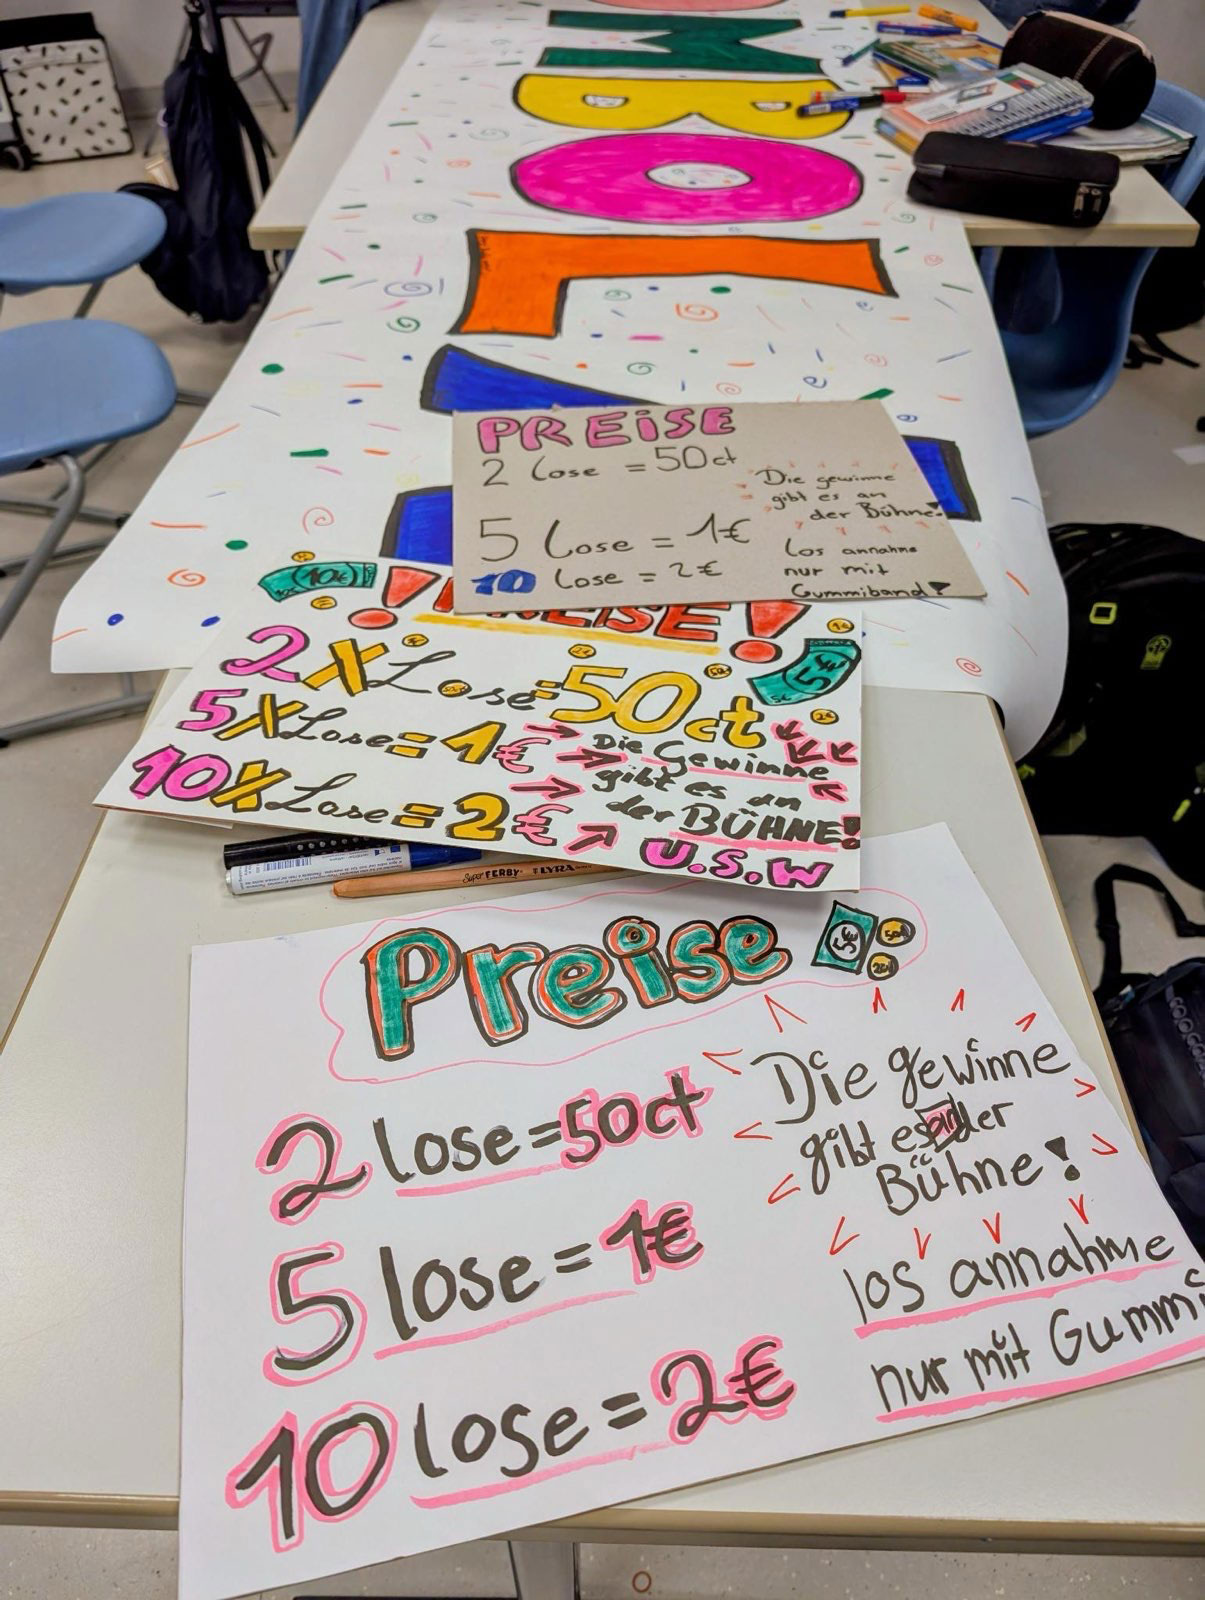 MBOLA
PREISE
2 Lose = 50ct
5 Lose = 1€
10 Lose = 2€
Die gewinne
gibt es an
der Bühne!
Los annahme
nur mit
Gummiband!
10€
! PREISE !
5€
2X Lose = 50ct
5X Lose = 1€
10X Lose = 2€
Die Gewinne
gibt es an
der BÜHNE!
U.S.W
Super FERBY LYRA
Preise
5€
2 lose = 50ct
5 lose = 1€
10 lose = 2€
Die gewinne
gibt es an der
Bühne!
los annahme
nur mit Gummi